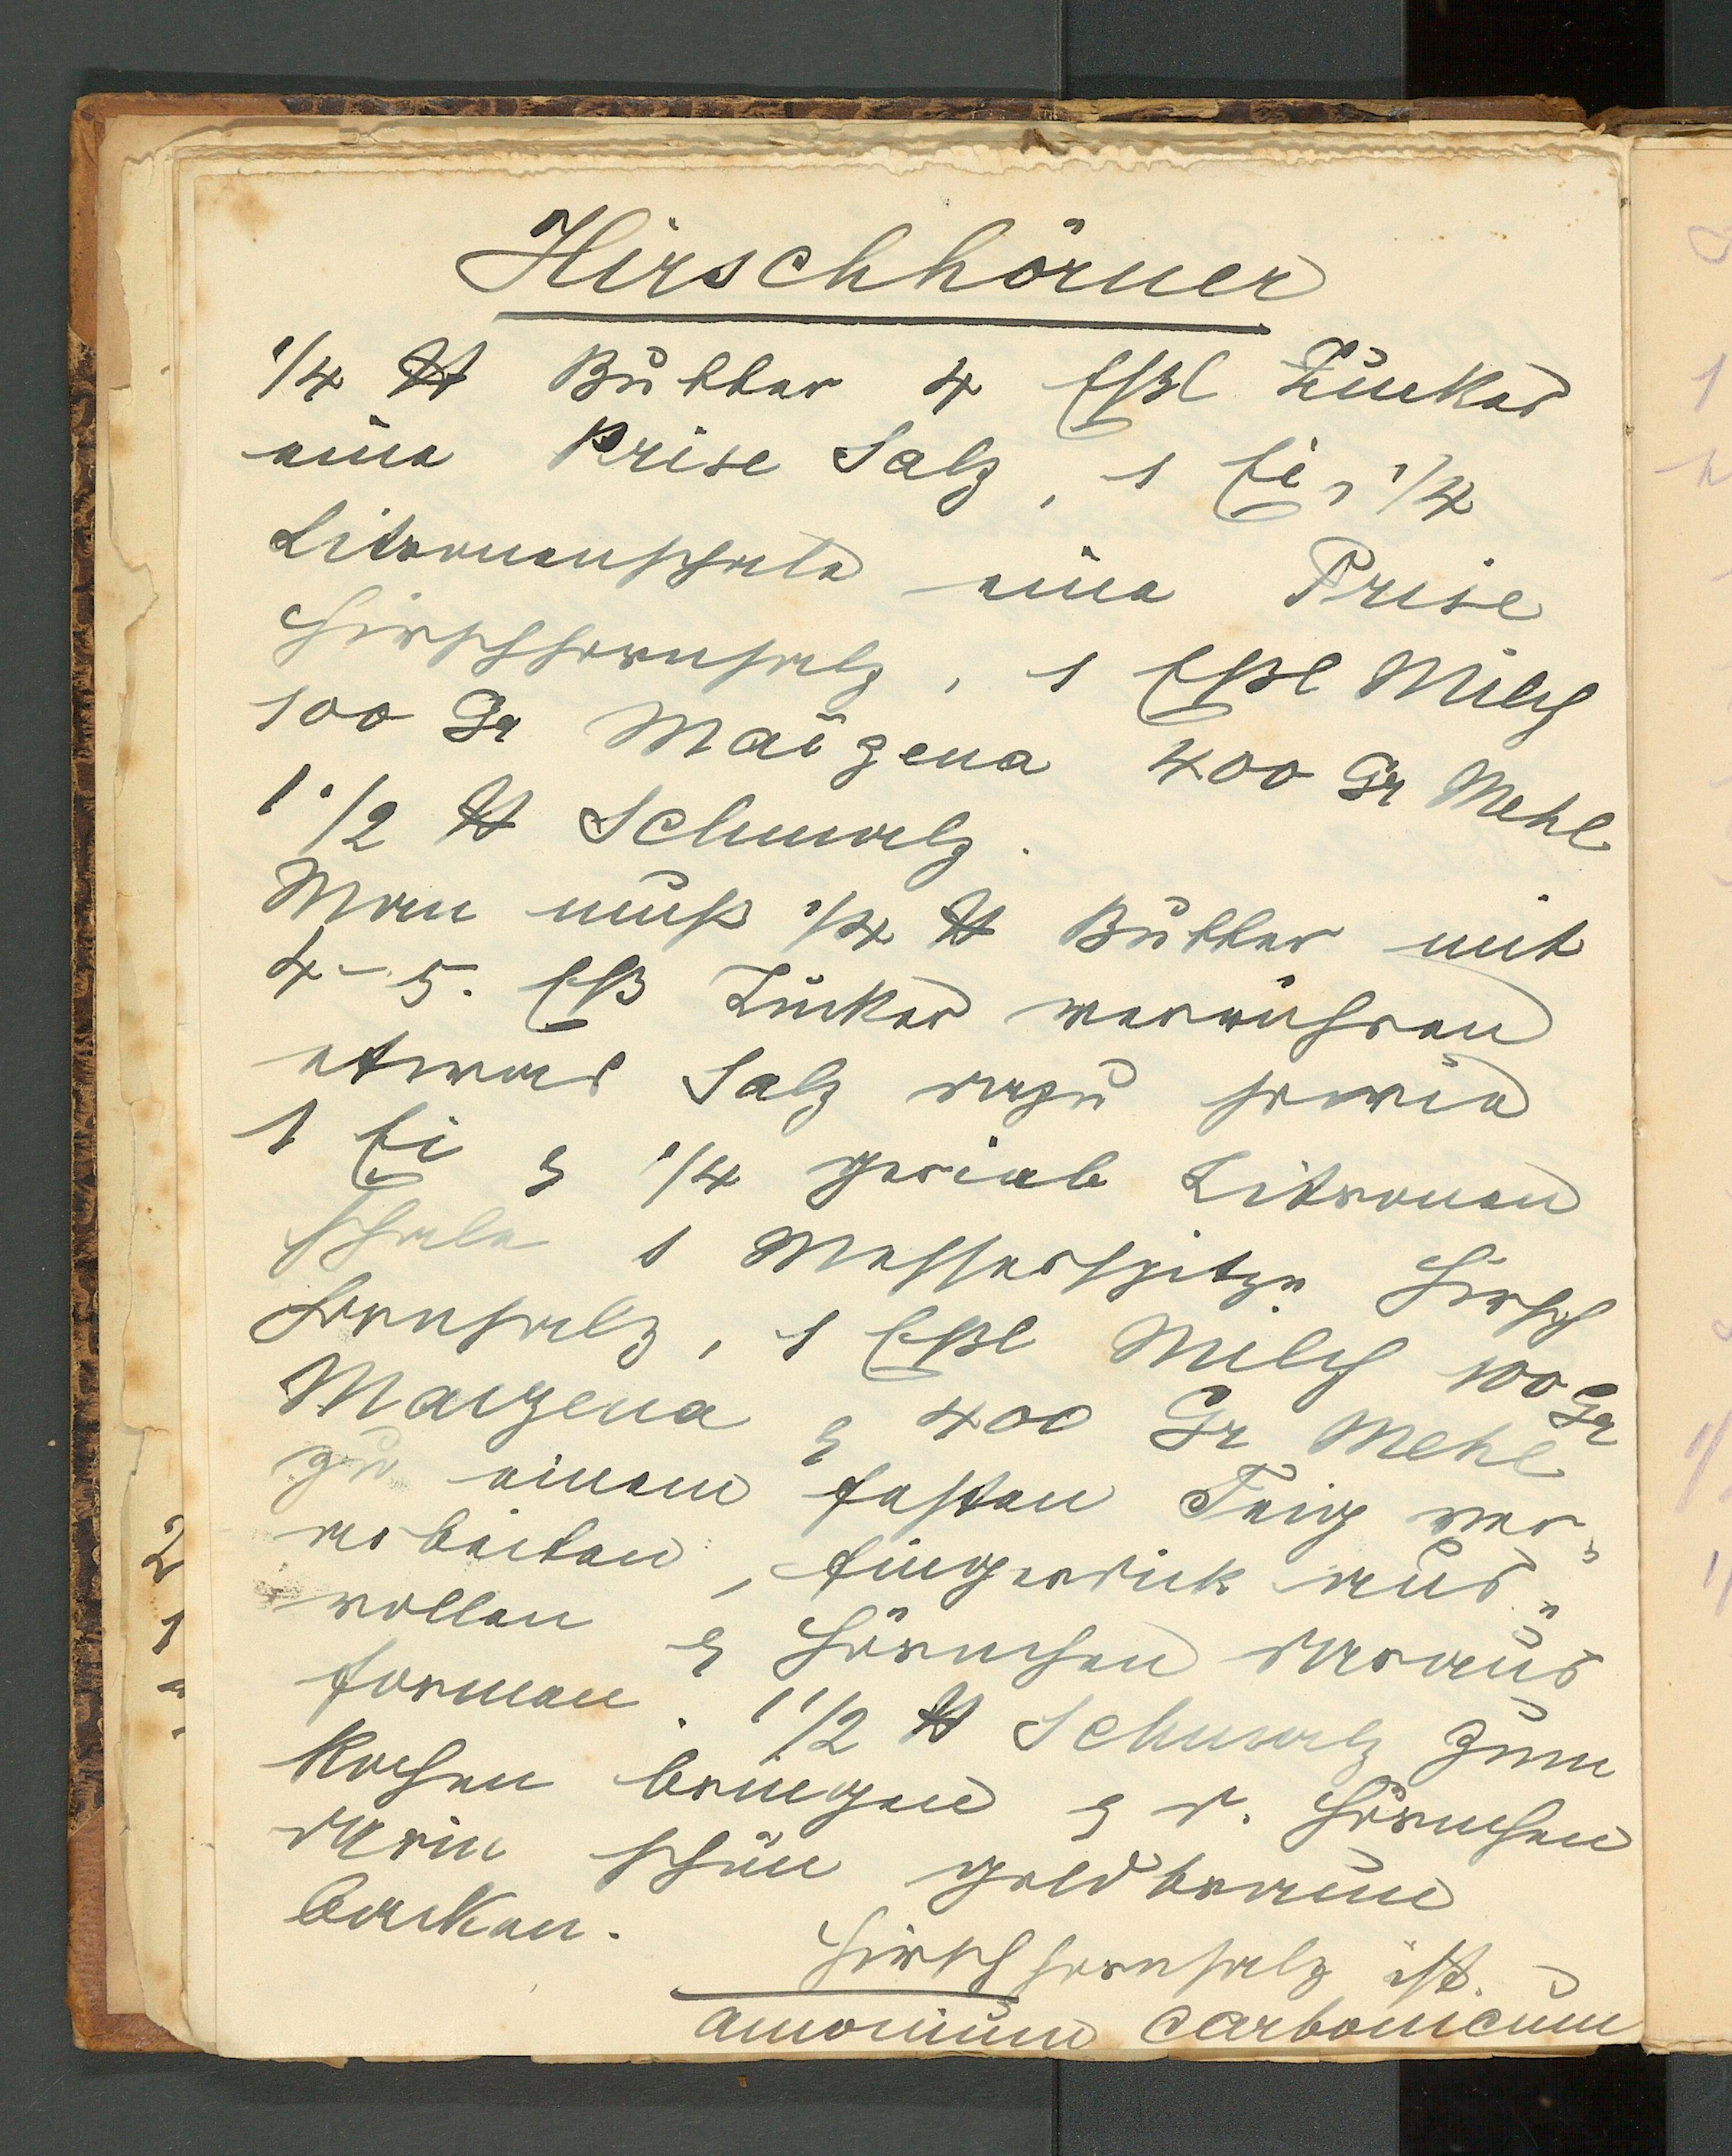 Hirschhörner
1/4 ℔ Butter 4 Eßl Zucker
eine Prise Salz, 1 Ei, 1/4
Litronenschale eine Prise
Hirschhornsalz, 1 Eßl Milch
100 Gr Maizena 400 Gr Mehl
1 1/2 ℔ Schmalz.
Man muß 1/4 ℔ Butter mit
4-5. Eß Zucker verrühren
etwas Salz dazu sowie
1 Ei & 1/4 gerieb Zitronen
schale 1 Messerspitze Hirsch
hornsalz, 1 Eßl Milch 100 Gr
Maizena & 400 Gr Mehl
zu einem festen Teig ver„
arbeiten, fingerdick aus„
rollen & Hörnchen daraus
formen. 1 1/2 ℔ Schmalz zum
Kochen bringen & d. Hörnchen
darin schön goldbraun
backen.
Hirschhornsalz ist.
amonium carbonicum
2
1